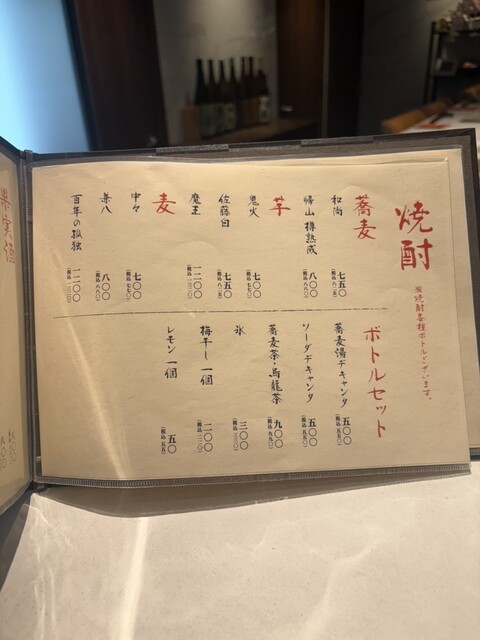 焼酎
※焼酎各種ボトルございます。
蕎麦
和尚 七五〇
(税込 八二五)
帰山 樽熟成 八〇〇
(税込 八八〇)
芋
鬼火 七〇〇
(税込 七七〇)
佐藤白 七五〇
(税込 八二五)
魔王 一二〇〇
(税込 一三二〇)
麦
中々 七〇〇
(税込 七七〇)
兼八 八〇〇
(税込 八八〇)
百年の孤独 一二〇〇
(税込 一三二〇)
ボトルセット
蕎麦湯デキャンタ 五〇〇
(税込 五五〇)
ソーダデキャンタ 五〇〇
(税込 五五〇)
蕎麦茶・烏龍茶 九〇〇
(税込 九九〇)
氷 三〇〇
(税込 三三〇)
梅干し一個 二〇〇
(税込 二二〇)
レモン一個 五〇
(税込 五五)
果実酒